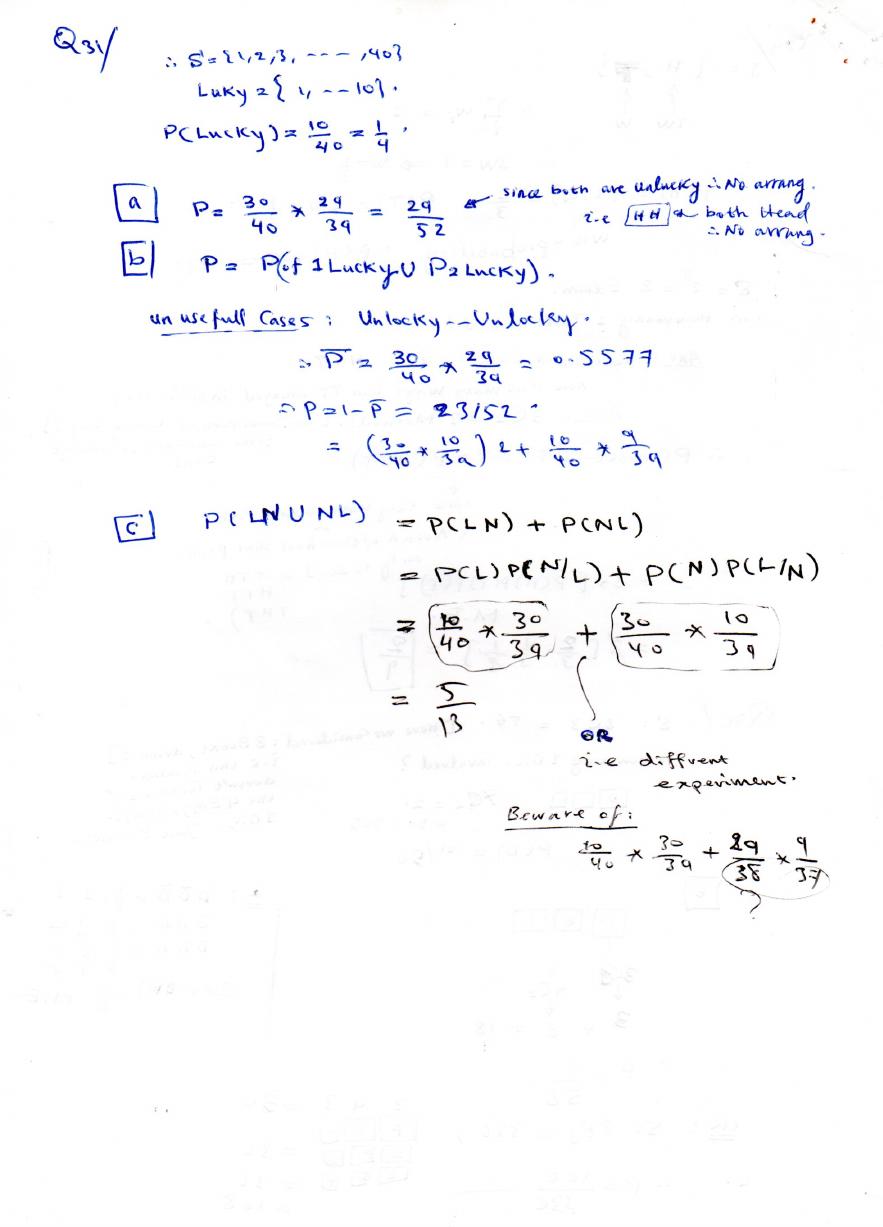 Q31/
∴ S = {1,2,3, ---- ,40}
Luky = { 1, -- 10}.
P(Lucky) = 10/40 = 1/4 .
a P = 30/40 * 29/39 = 29/52 ← since both are unlucky ∴ No arrang.
i.e HH both Head
∴ No arrang.
b P = P(of 1 Lucky U P2 Lucky).
un usefull Cases : Unlocky -- Unlocky.
∴ P̅ = 30/40 * 29/39 = 0.5577
∴ P = 1 - P̅ = 23/52
= (30/40 * 10/39) 2 + 10/40 * 9/39
c P( LN U NL) = P(LN) + P(NL)
= P(L) P(N/L) + P(N) P(L/N)
= 10/40 * 30/39 + 30/40 * 10/39
= 5/13
OR
i.e diffrent
experiment.
Beware of :
10/40 * 30/39 + 29/38 * 9/37
?